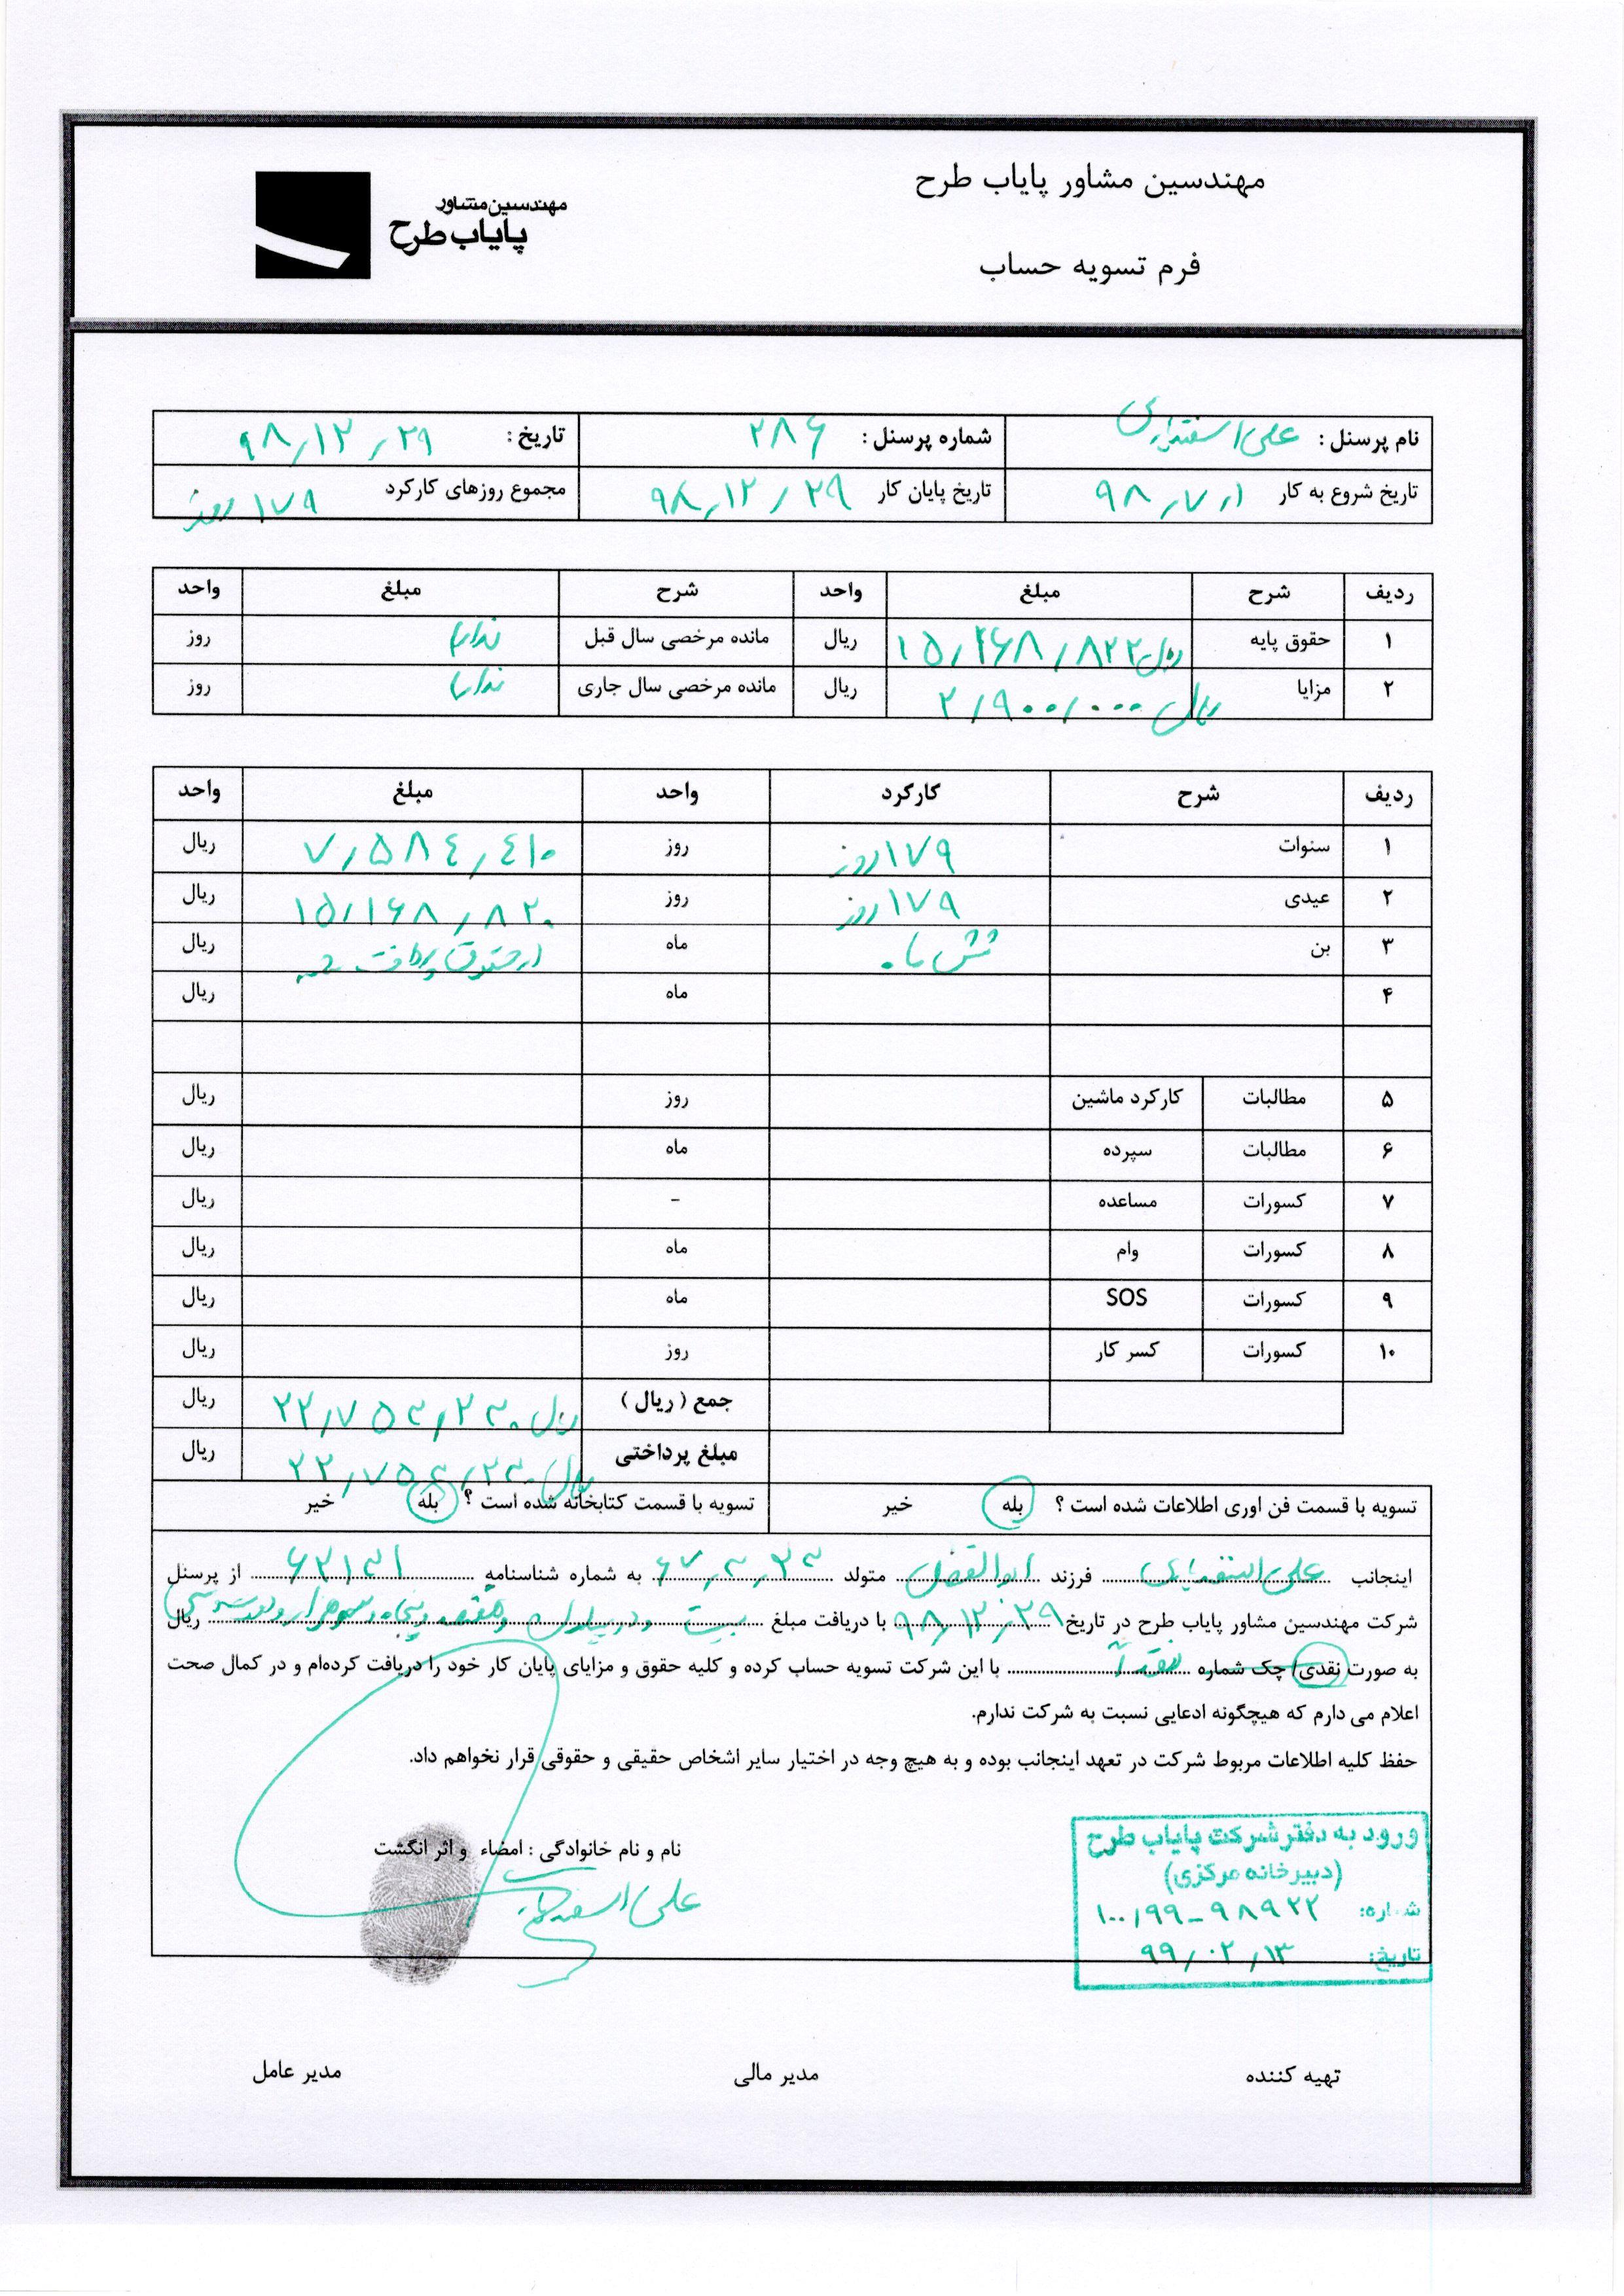 مهندسین مشاور پایاب طرح
مهندسین مشاور
پایاب طرح
فرم تسویه حساب
نام پرسنل : علی اسفندیاری شماره پرسنل : ۲۸۶ تاریخ : ۹۸/۱۲/۲۹
تاریخ شروع به کار ۹۸/۷/۱ تاریخ پایان کار ۹۸/۱۲/۲۹ مجموع روزهای کارکرد ۱۷۹ روز
ردیف شرح مبلغ واحد شرح مبلغ واحد
۱ حقوق پایه ریال ریال مانده مرخصی سال قبل ندارد روز
۲ مزایا ۲/۹۰۰/۰۰۰ ریال ریال مانده مرخصی سال جاری ندارد روز
ردیف شرح کارکرد واحد مبلغ واحد
۱ سنوات ۱۷۹ روز روز ۷/۵۸۴/۴۱۰ ریال
۲ عیدی ۱۷۹ روز روز ۱۵/۱۶۸/۸۲۰ ریال
۳ بن شش ماه ماه در حقوق پرداخت شد ریال
۴ ماه ریال
۵ مطالبات کارکرد ماشین روز ریال
۶ مطالبات سپرده ماه ریال
۷ کسورات مساعده - ریال
۸ کسورات وام ماه ریال
۹ کسورات SOS ماه ریال
۱۰ کسورات کسر کار روز ریال
جمع ( ریال ) ۲۲/۷۵۳/۲۳۰ ریال ریال
مبلغ پرداختی ۲۲/۷۵۳/۲۳۰ ریال ریال
تسویه با قسمت فن اوری اطلاعات شده است ؟ بله خیر تسویه با قسمت کتابخانه شده است ؟ بله خیر
اینجانب علی اسفندیاری فرزند ابوالفضل متولد ۶۷/۳/۲۳ به شماره شناسنامه ۶۲۱۳۱ از پرسنل
شرکت مهندسین مشاور پایاب طرح در تاریخ ۹۸/۱۲/۲۹ با دریافت مبلغ بیست و دو میلیون و هفتصد و پنجاه و سه هزار و دویست و سی ریال
به صورت نقدی/ چک شماره نقداً با این شرکت تسویه حساب کرده و کلیه حقوق و مزایای پایان کار خود را دریافت کرده‌ام و در کمال صحت
اعلام می دارم که هیچگونه ادعایی نسبت به شرکت ندارم.
حفظ کلیه اطلاعات مربوط شرکت در تعهد اینجانب بوده و به هیچ وجه در اختیار سایر اشخاص حقیقی و حقوقی قرار نخواهم داد.
نام و نام خانوادگی : امضاء و اثر انگشت
علی اسفندیاری
ورود به دفتر شرکت پایاب طرح
(دبیرخانه مرکزی)
شماره: ۱۰۰/۹۹-۹۸۹۲۲
تاریخ: ۹۹/۰۲/۱۳
تهیه کننده مدیر مالی مدیر عامل